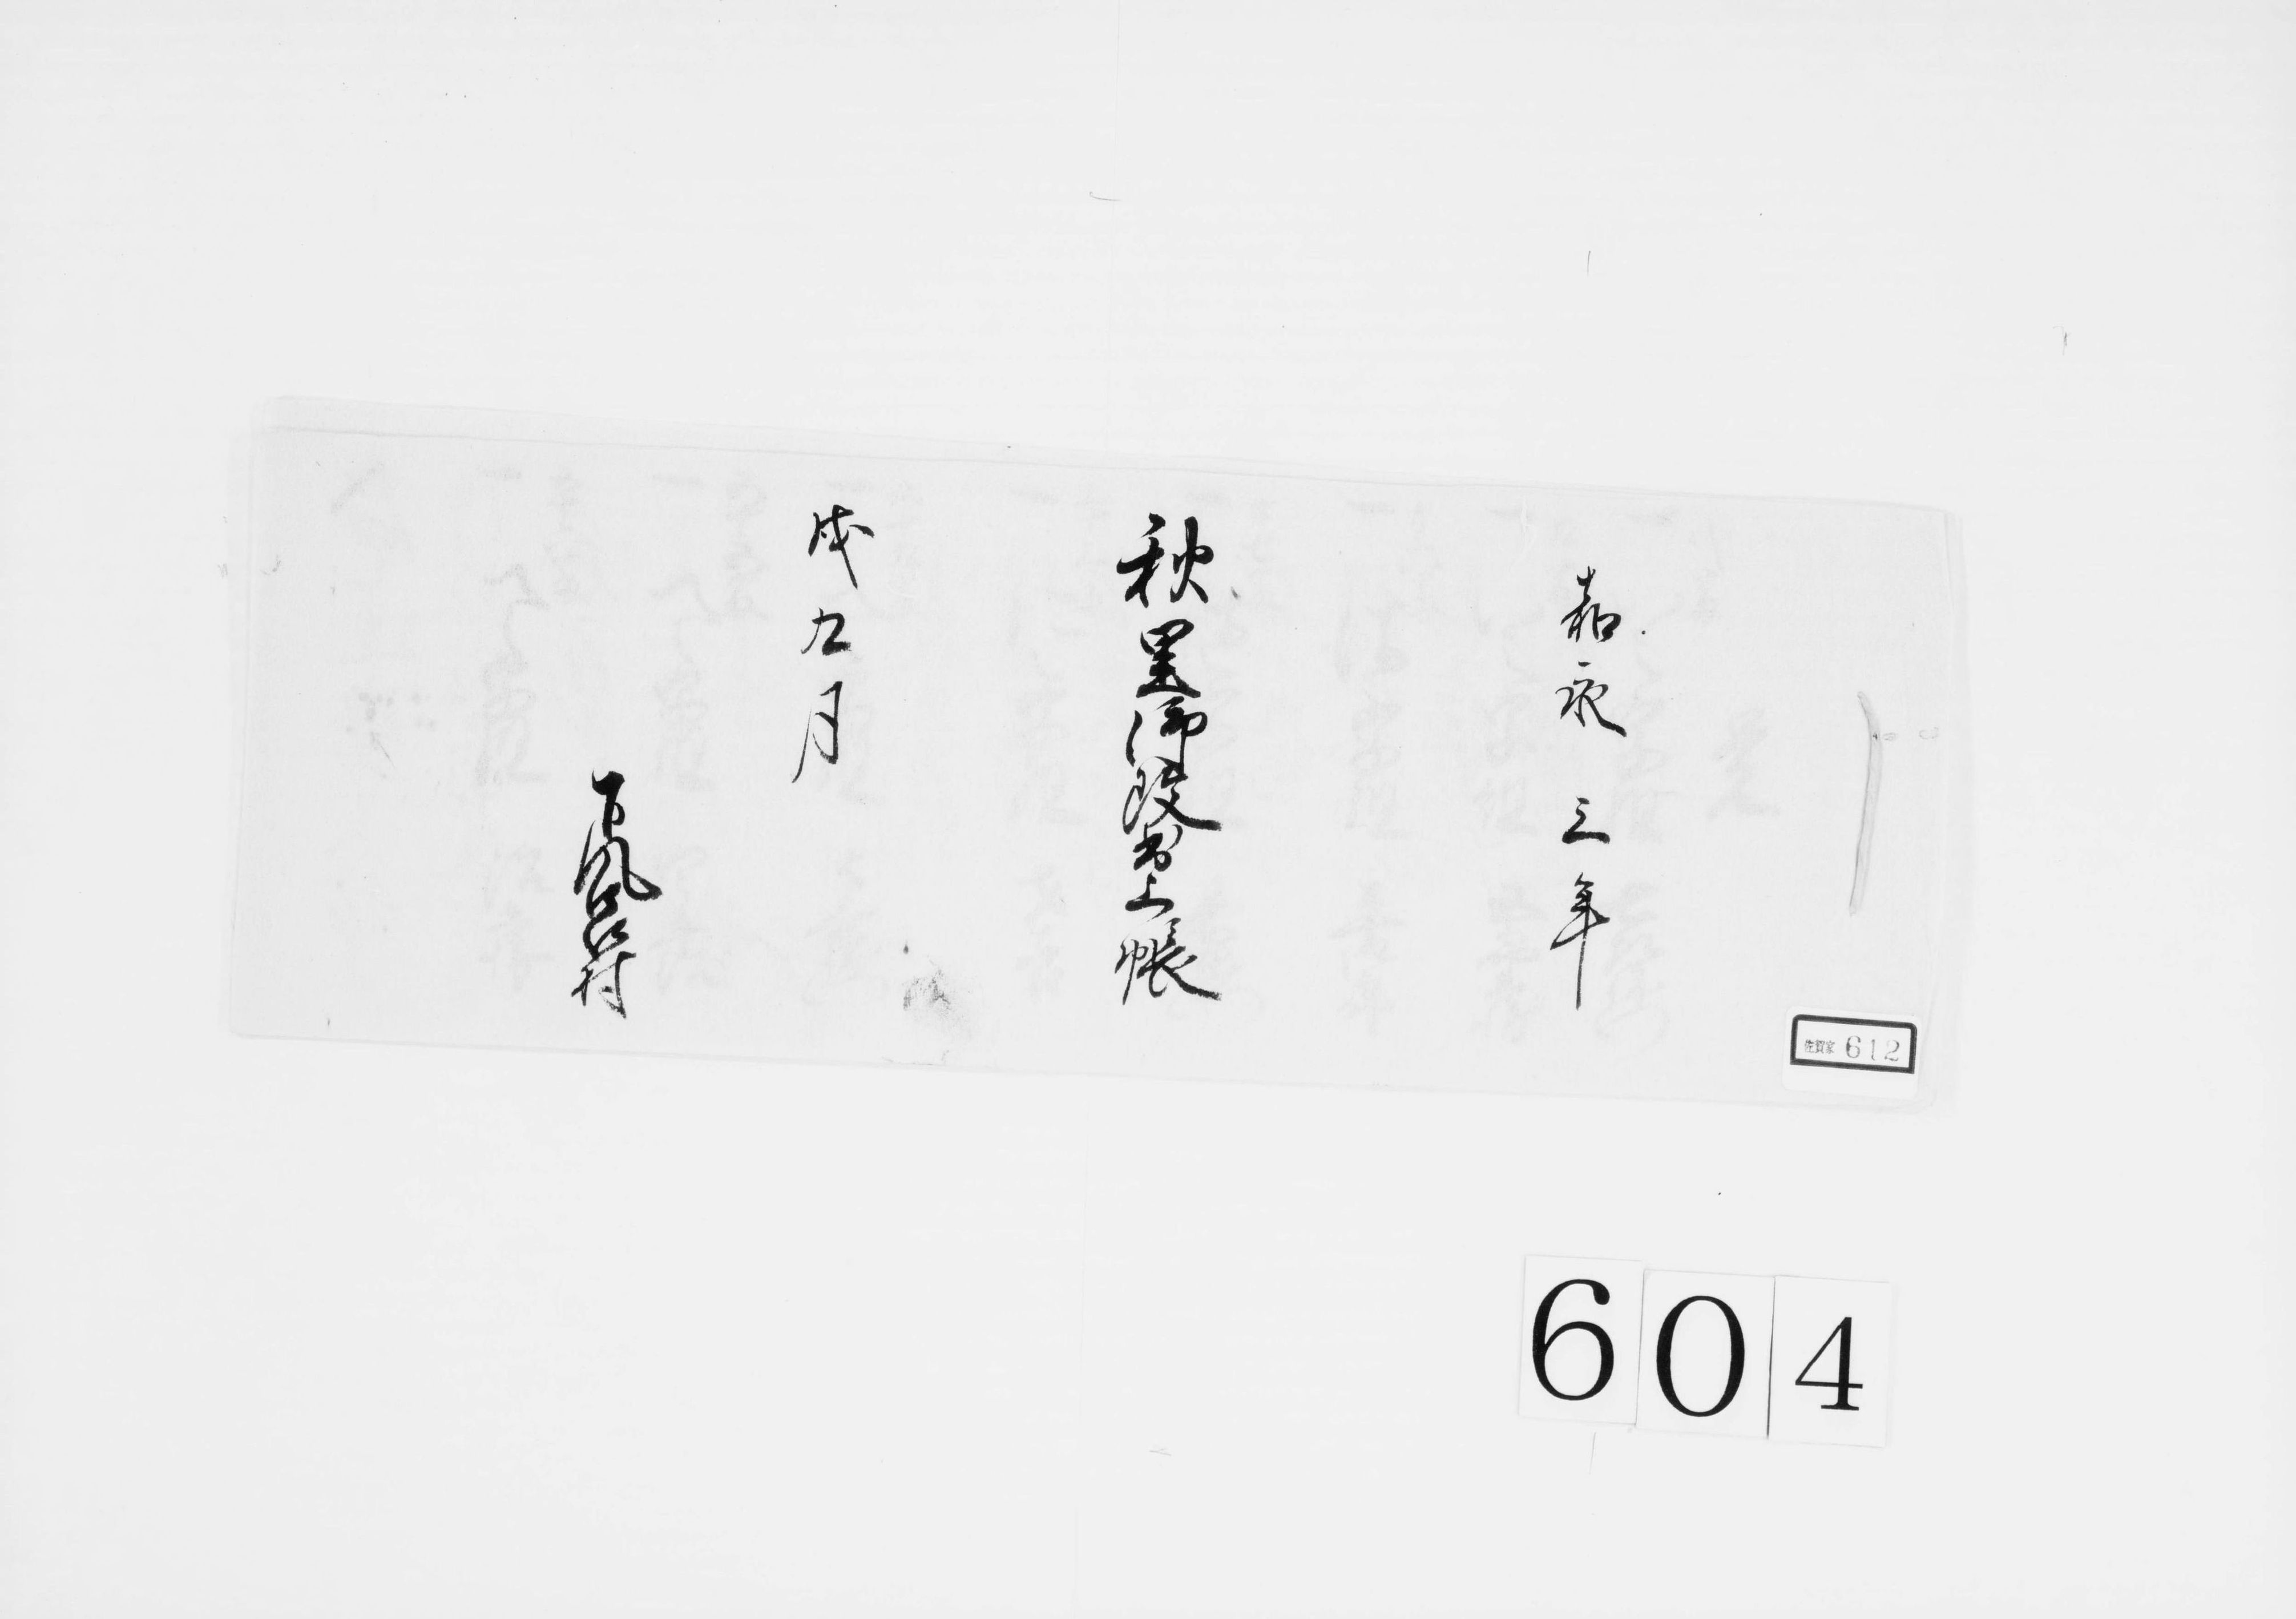 嘉永三年
秋里御改書上帳
戌九月
下風呂村
佐賀家 612
604